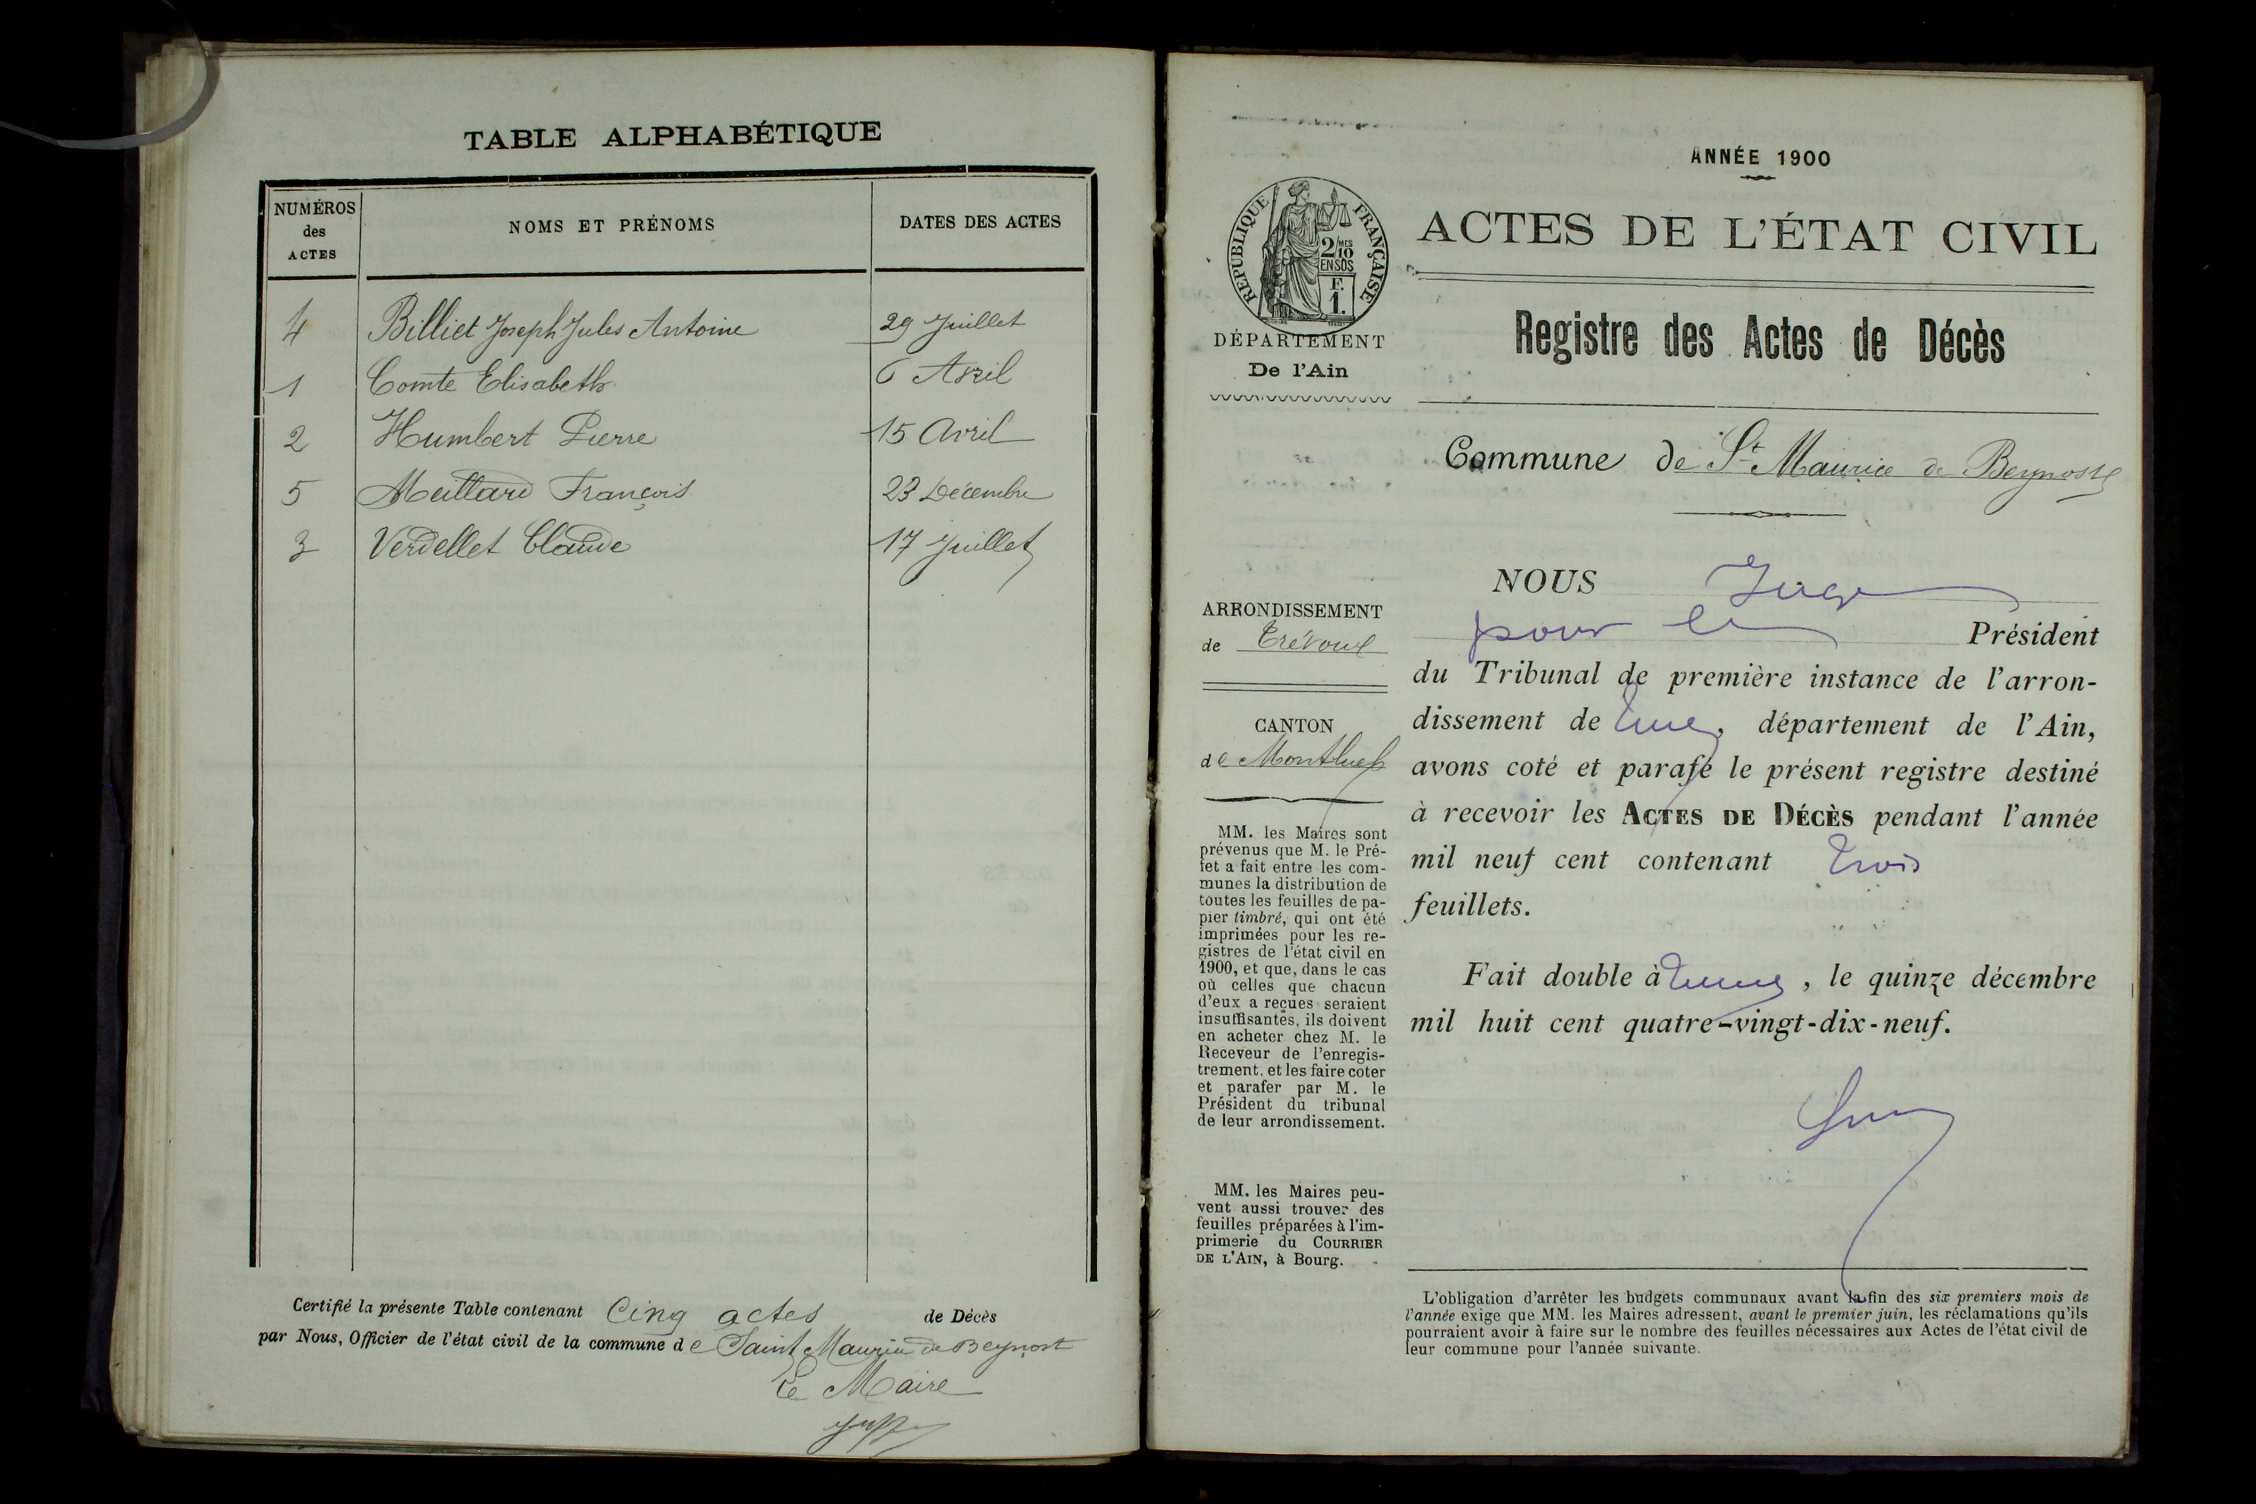 TABLE ALPHABÉTIQUE
NUMÉROS des ACTES
NOMS ET PRÉNOMS
DATES DES ACTES
4 Billiet Joseph Jules Antoine 29 Juillet
1 Comte Elisabeth 6 Avril
2 Humbert Pierre 15 Avril
5 Maillard François 23 Décembre
3 Verdellet Claude 17 Juillet
Certifié la présente Table contenant Cinq actes de Décès
par Nous, Officier de l'état civil de la commune de Saint Maurice de Beynost
Le Maire
ANNÉE 1900
RÉPUBLIQUE FRANÇAISE
2/10 MES
EN SUS
F.
1.
DÉPARTEMENT
De l'Ain
ACTES DE L'ÉTAT CIVIL
Registre des Actes de Décès
Commune de St Maurice de Beynost
ARRONDISSEMENT
de Trévoux
CANTON
de Montluel
MM. les Maires sont
prévenus que M. le Pré-
fet a fait entre les com-
munes la distribution de
toutes les feuilles de pa-
pier timbré, qui ont été
imprimées pour les re-
gistres de l'état civil en
1900, et que, dans le cas
où celles que chacun
d'eux a reçues seraient
insuffisantes, ils doivent
en acheter chez M. le
Receveur de l'enregis-
trement, et les faire coter
et parafer par M. le
Président du tribunal
de leur arrondissement.
MM. les Maires peu-
vent aussi trouver des
feuilles préparées à l'im-
primerie du COURRIER
DE L'AIN, à Bourg.
NOUS Juge
pour le Président
du Tribunal de première instance de l'arron-
dissement de , département de l'Ain,
avons coté et parafé le présent registre destiné
à recevoir les ACTES DE DÉCÈS pendant l'année
mil neuf cent contenant trois
feuillets.
Fait double à , le quinze décembre
mil huit cent quatre-vingt-dix-neuf.
L'obligation d'arrêter les budgets communaux avant la fin des six premiers mois de
l'année exige que MM. les Maires adressent, avant le premier juin, les réclamations qu'ils
pourraient avoir à faire sur le nombre des feuilles nécessaires aux Actes de l'état civil de
leur commune pour l'année suivante.